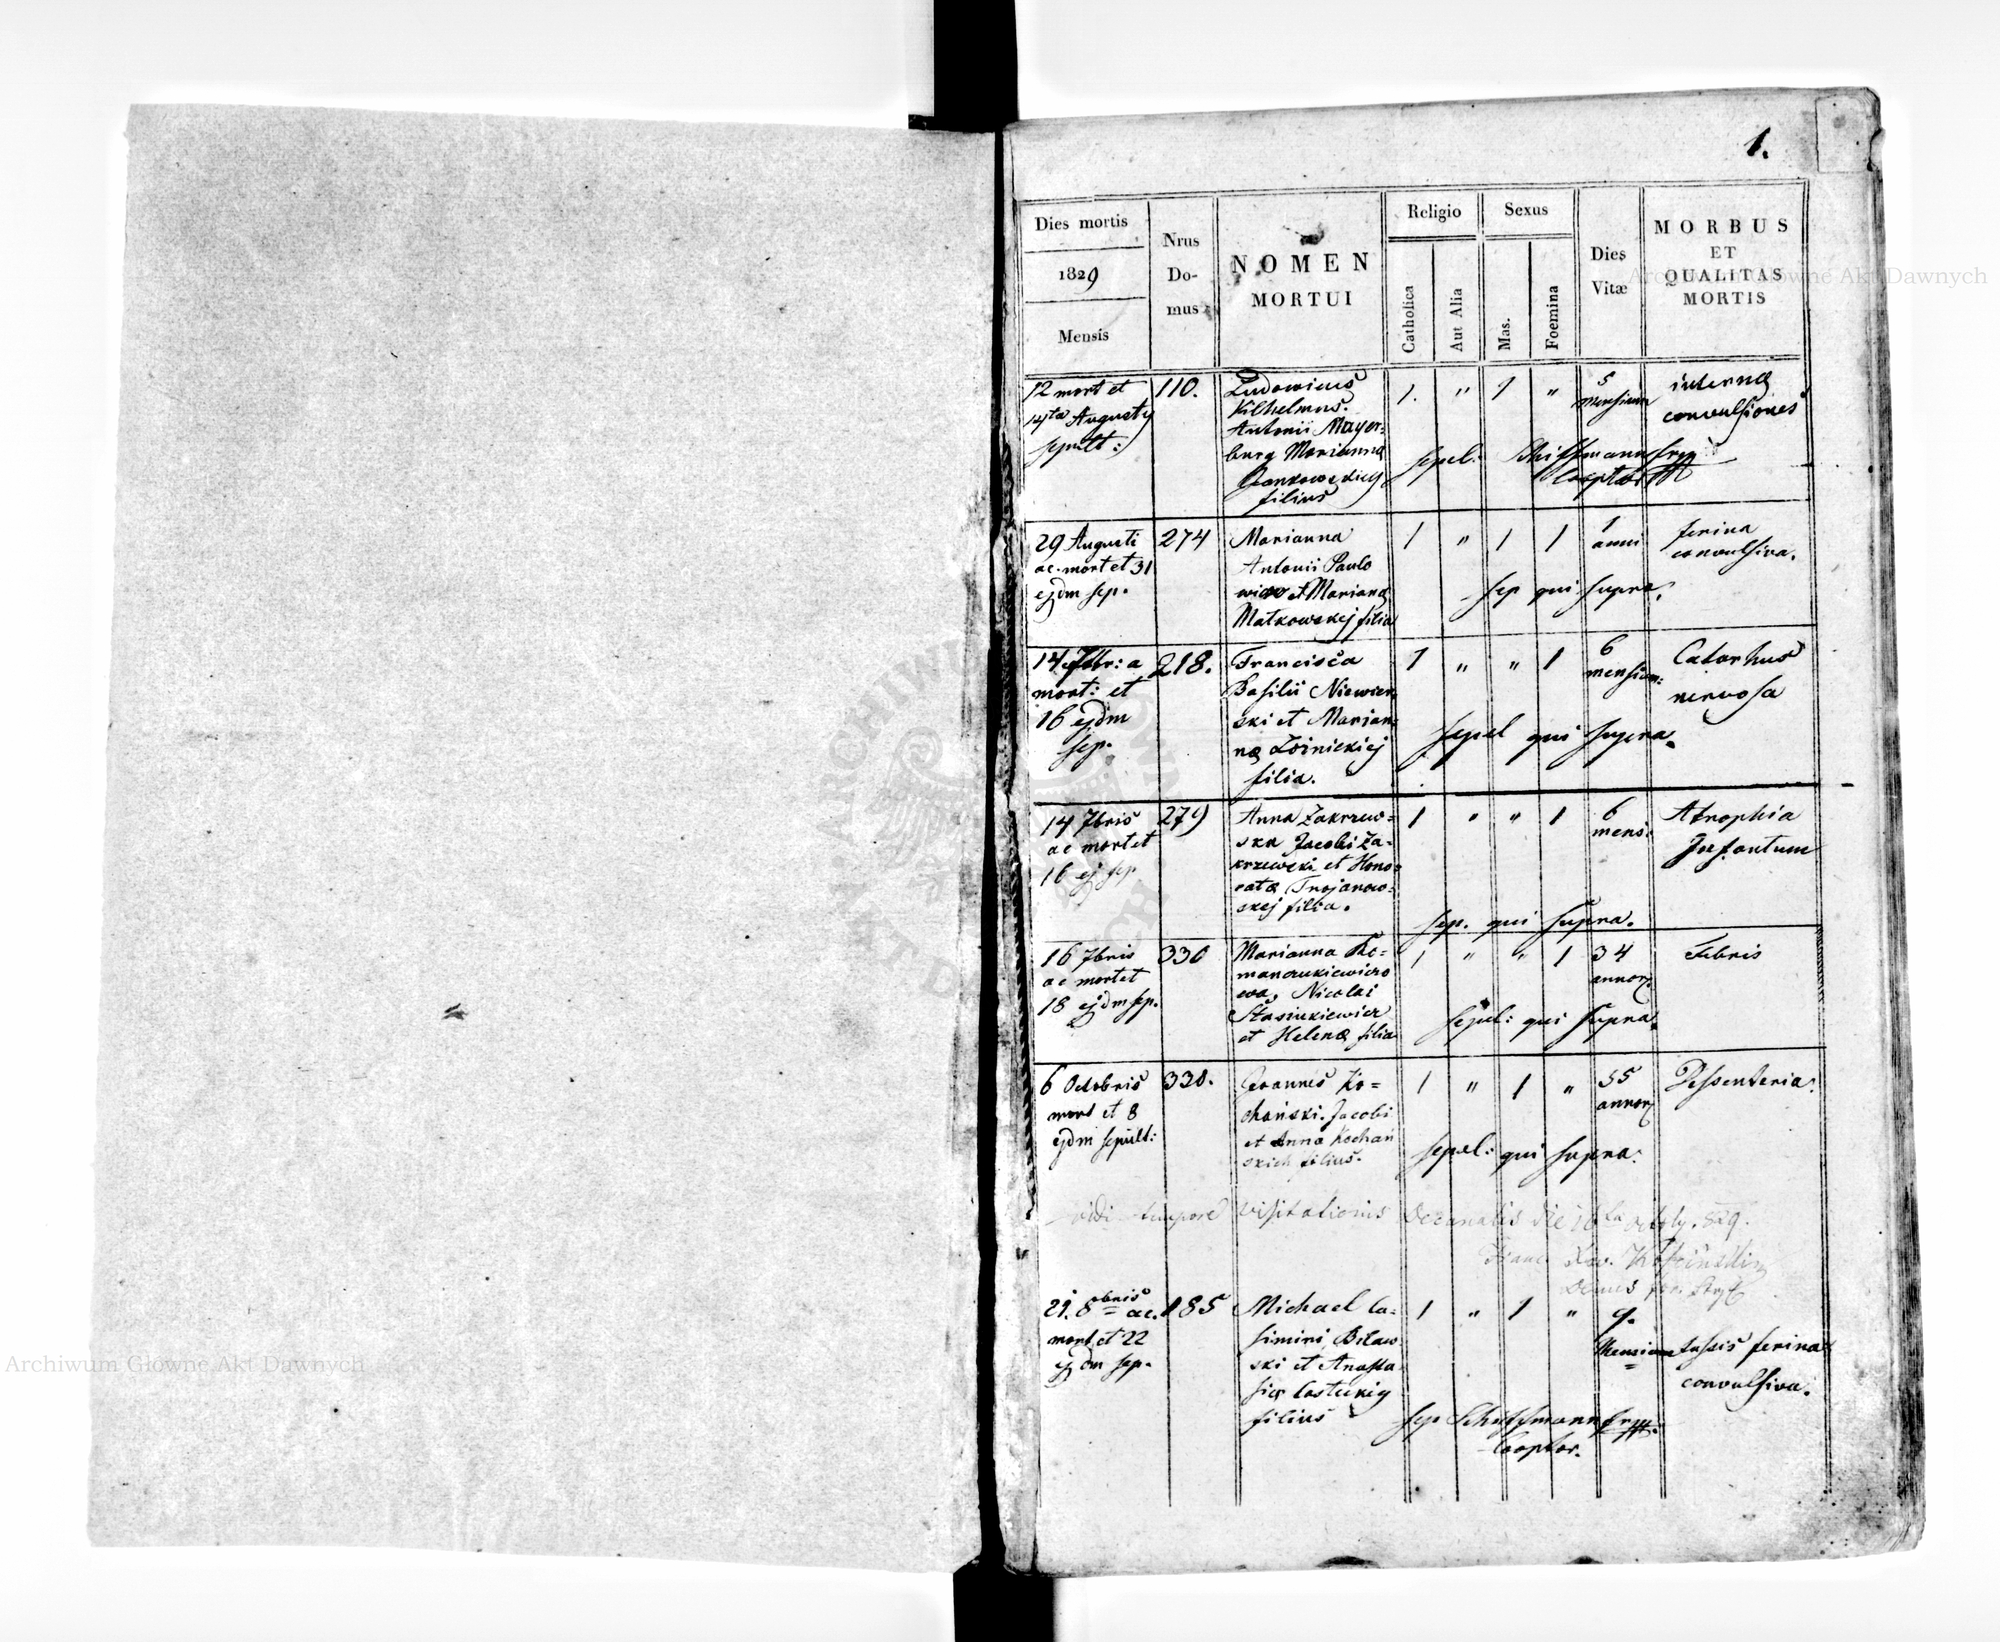 1.
Dies mortis
1829
Mensis
Nrus
Do-
mus
NOMEN
MORTUI
Religio
Catholica
Aut Alia
Sexus
Mas.
Foemina
Dies
Vitæ
MORBUS
ET
QUALITAS
MORTIS
12 mort et
14ta Augusty
sepult:
110.
Ludowicus
Vilhelmus.
Antonii Mayer-
burg Marianna
filius
1. " 1 "
5
Mensium
interna
convulsiones
sepel: Schiffmann
29 Augusti
ac. mort et 31
ejdm sep.
274
Marianna
Antonii Paulo
wicz et Mariana
Matkowskej filia
1 " 1 1
1
anni
ferina
convulsiva.
sep qui supra.
14 7br: a
mort: et
16 ejdm
sep.
218.
Francisca
Basilii Niewier
ski et Marian-
næ
filia.
1 " " 1
6
mensium:
Catarhus
nervosa
sepel qui supra.
14 7bris
ac mort et
16 ej sep
279
Anna Zakrzew-
ska Jacobi Za-
krzewski et Hono-
ratæ Trojanow-
skej filia.
1 " " 1
6
mens:
Atrophia
Infantum
sep. qui supra.
16 7bris
ac mort et
18 ejdm sep.
330
Marianna
Nicolai
Stasiukiewicz
et Helenæ filia
1 " " 1
34
annor
Febris
sepel: qui supra.
6 Octobris
mort et 8
ejdm sepult:
330.
Joannes Ko-
chański. Jacobi
et Anna Kochań
skich filius.
1 " 1 "
55
annor
Dessenteria.
sepel: qui supra.
vidi tempore visitationis Decanalis die 829.
21. 8obris ac.
mort et 22
ejdm sep.
185
Michael Ca-
simiri Bilaw
ski et Anasta
filius
1 " 1 "
9.
Mensium
tussis ferina
convulsiva.
sep Schiffmann
Cooptor.
Archiwum Główne Akt Dawnych
Archiwum Główne Akt Dawnych